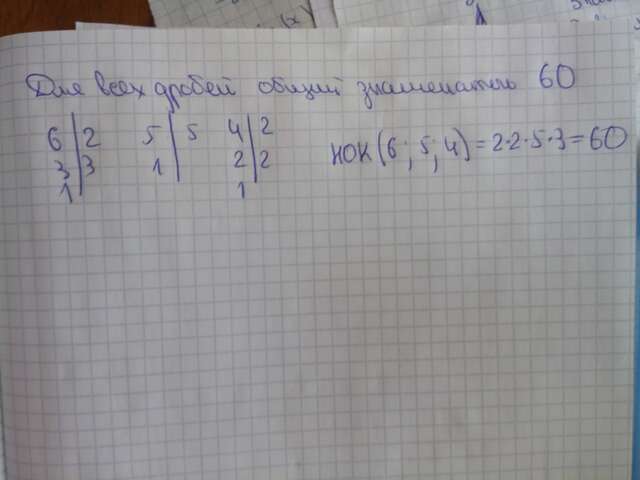 Для всех дробей общий знаменатель 60
6|2 5|5 4|2 НОК(6; 5; 4) = 2·2·5·3 = 60
3|3 1| 2|2
1| 1|